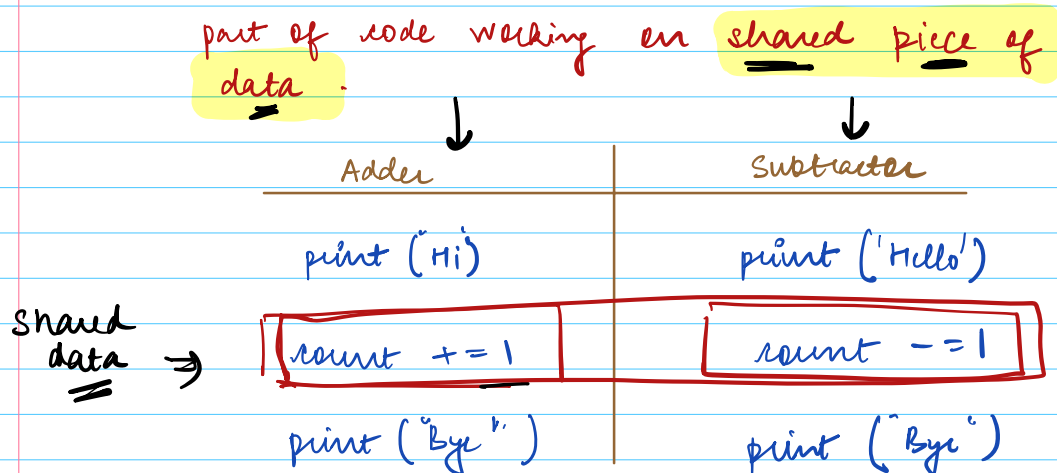 part of code working on shared piece of
data.
Adder Subtractor
print ("Hi") print ('Hello')
shared
data ⇒ count += 1 count -= 1
print ("Bye") print ("Bye")